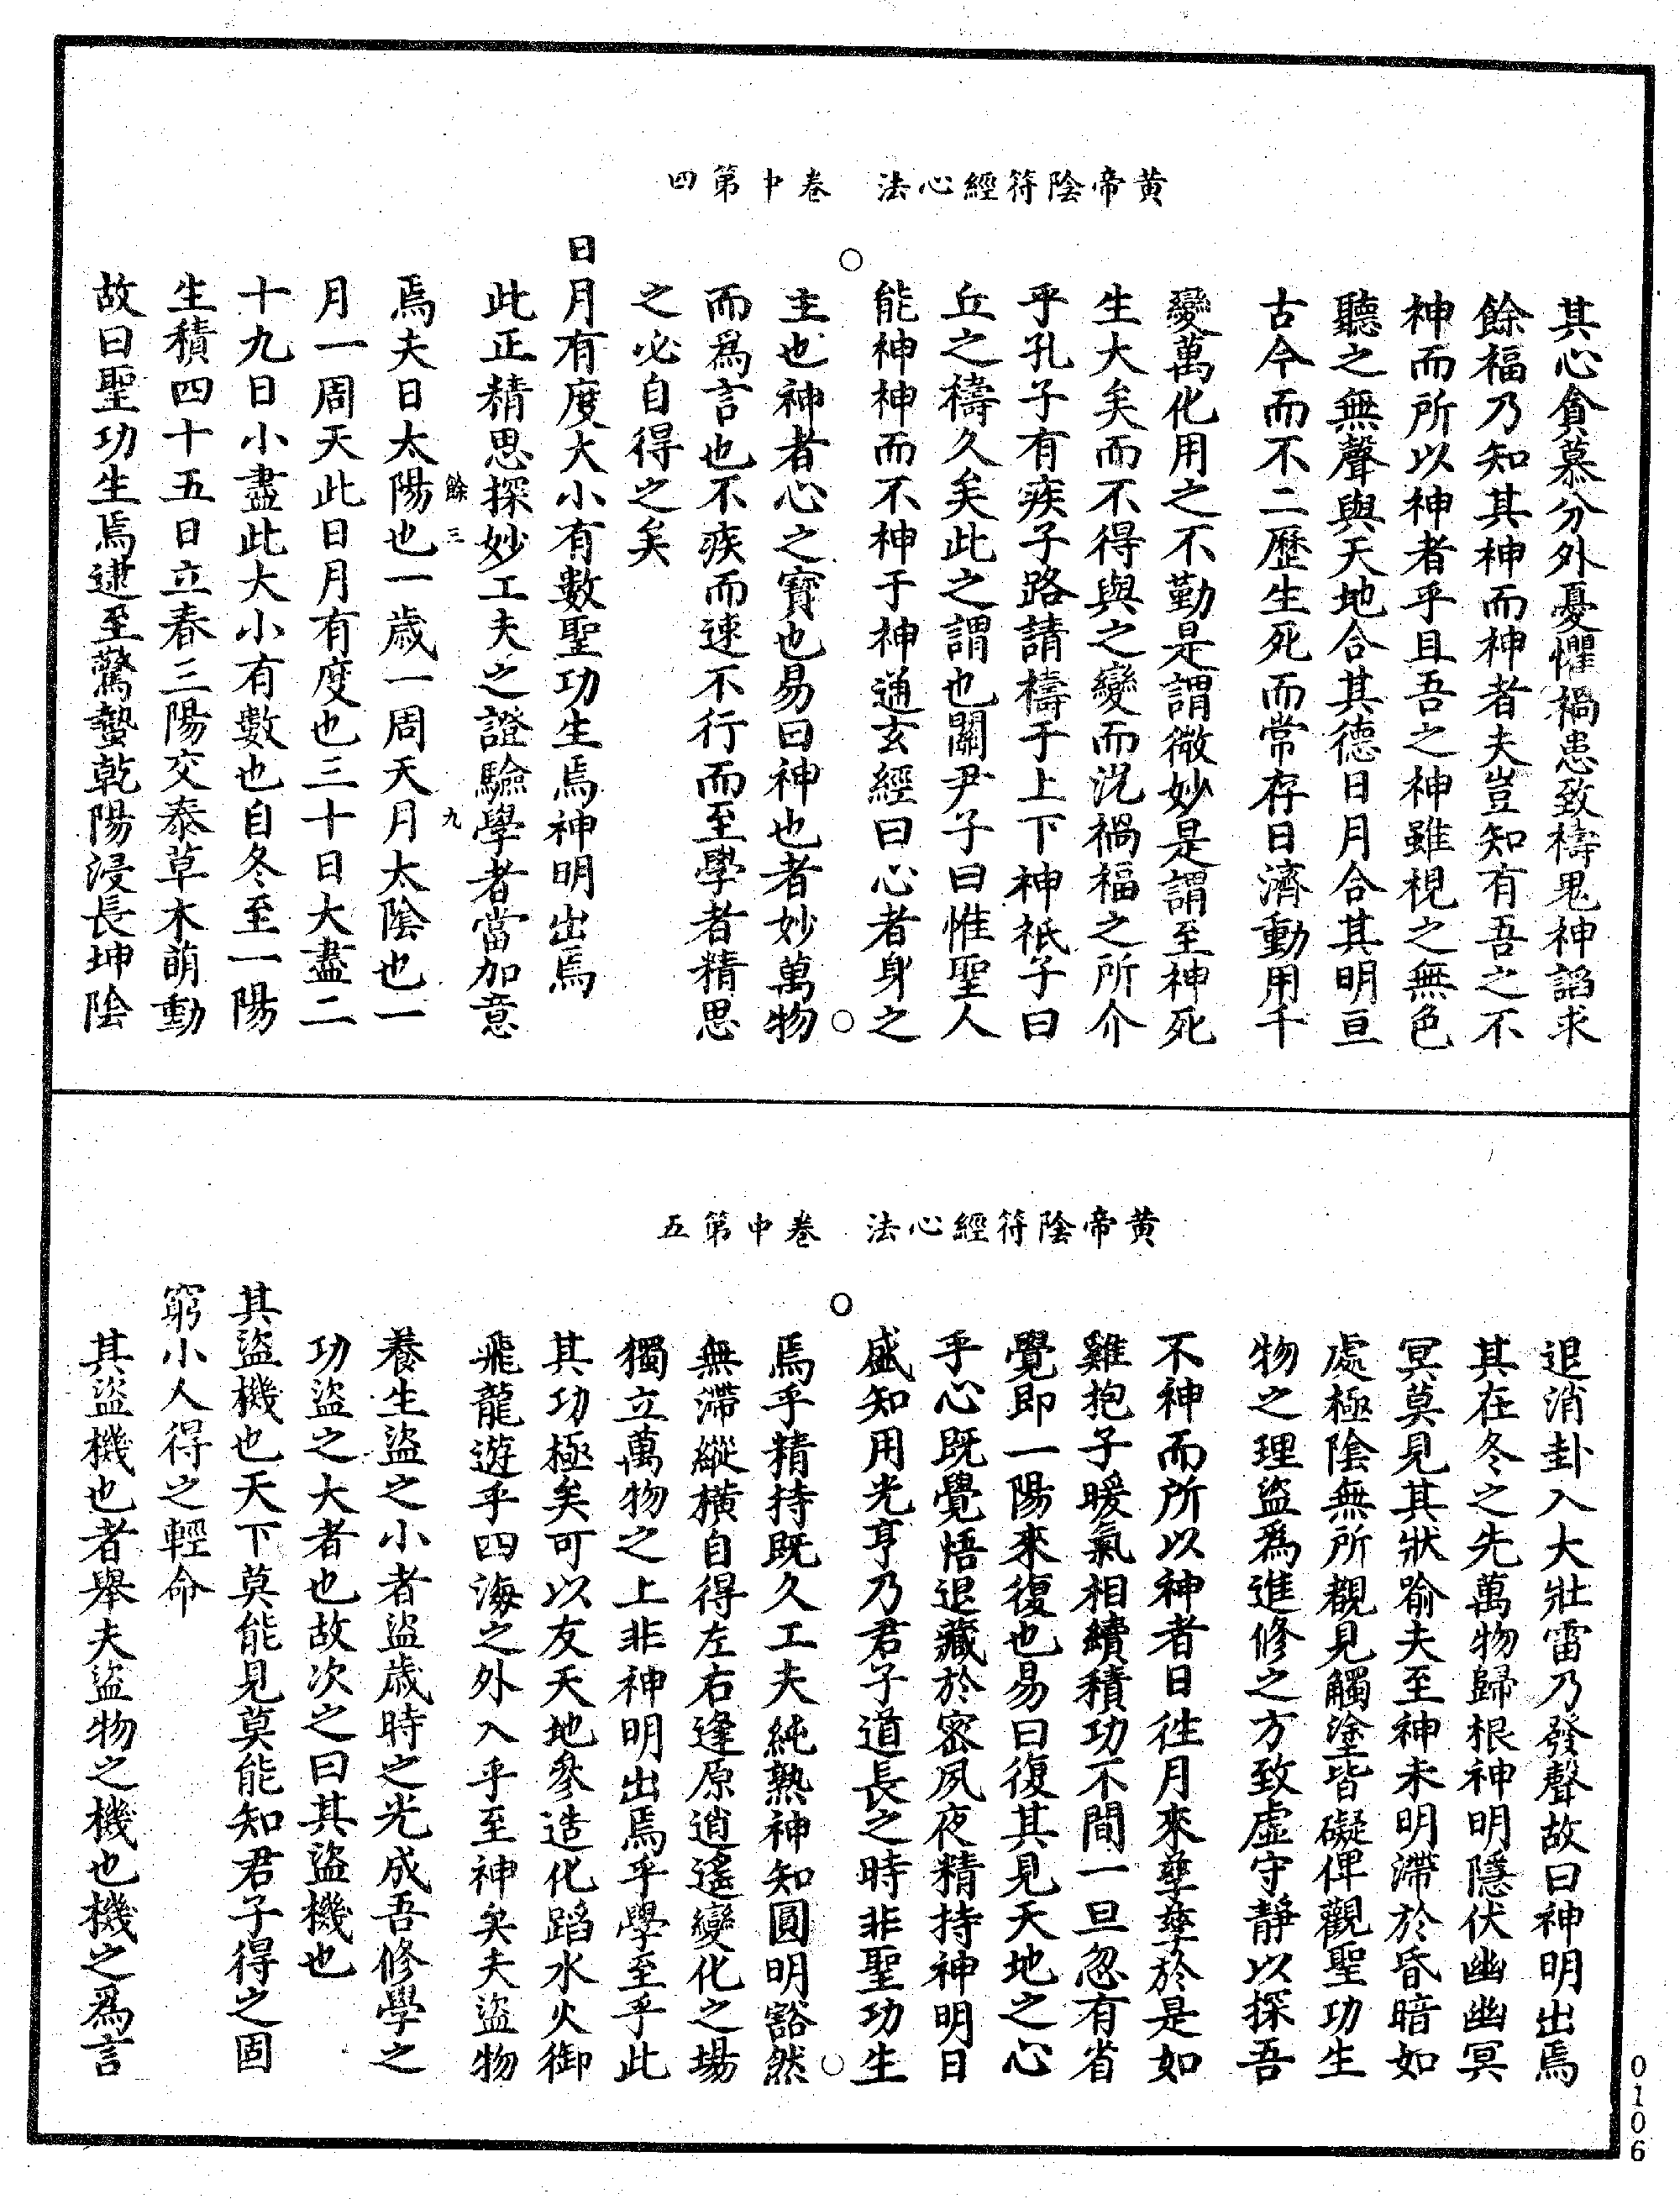 黃帝陰符經心法　卷中第四
其心貪慕分外憂懼禍患致禱鬼神諂求
餘福乃知其神而神者夫豈知有吾之不
神而所以神者乎且吾之神雖視之無色
聽之無聲與天地合其德日月合其明亘
古今而不二歷生死而常存日濟動用千
變萬化用之不勤是謂微妙是謂至神死
生大矣而不得與之變而況禍福之所介
乎孔子有疾子路請禱于上下神祇子曰
丘之禱久矣此之謂也關尹子曰惟聖人
能神神而不神于神通玄經曰心者身之
主也神者心之寶也易曰神也者妙萬物
而爲言也不疾而速不行而至學者精思
之必自得之矣
日月有度大小有數聖功生焉神明出焉
此正精思探妙工夫之證驗學者當加意
餘三　九
焉夫日太陽也一歲一周天月太陰也一
月一周天此日月有度也三十日大盡二
十九日小盡此大小有數也自冬至一陽
生積四十五日立春三陽交泰草木萌動
故曰聖功生焉逮至驚蟄乾陽浸長坤陰
黃帝陰符經心法　卷中第五
退消卦入大壯雷乃發聲故曰神明出焉
其在冬之先萬物歸根神明隱伏幽幽冥
冥莫見其狀喻夫至神未明滯於昏暗如
處極陰無所覩見觸塗皆礙俾觀聖功生
物之理盜爲進修之方致虛守靜以探吾
不神而所以神者日往月來孳孳於是如
雞抱子暖氣相續積功不間一旦忽有省
覺即一陽來復也易曰復其見天地之心
乎心既覺悟退藏於密夙夜精持神明日
盛知用光亨乃君子道長之時非聖功生
焉乎精持既久工夫純熟神知圓明豁然
無滯縱橫自得左右逢原逍遙變化之場
獨立萬物之上非神明出焉乎學至乎此
其功極矣可以友天地參造化蹈水火御
飛龍遊乎四海之外入乎至神矣夫盜物
養生盜之小者盜歲時之光成吾修學之
功盜之大者也故次之曰其盜機也
其盜機也天下莫能見莫能知君子得之固
窮小人得之輕命
其盜機也者舉夫盜物之機也機之爲言
0106